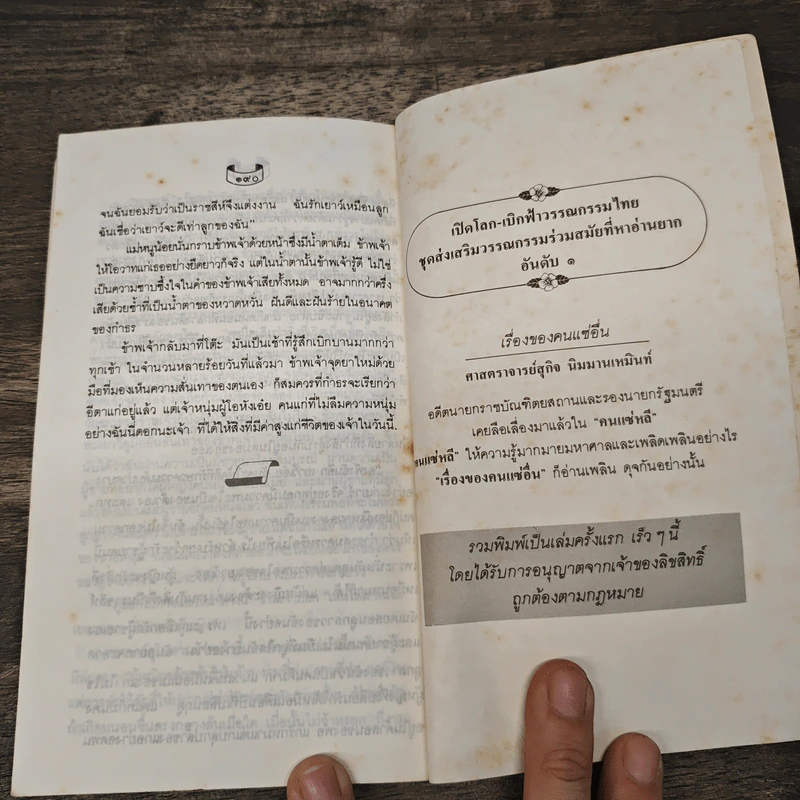 ๑๙๐
จนฉันยอมรับว่าเป็นราชสีห์จึงแต่งงาน ฉันรักเยาว์เหมือนลูก
ฉันเชื่อว่าเยาว์จะดีเท่าลูกของฉัน"
แม่หนูน้อยนั่นกราบข้าพเจ้าด้วยหน้าซึ่งมีน้ำตาเต็ม ข้าพเจ้า
ให้โอวาทแก่เธออย่างยืดยาวก็จริง แต่ในน้ำตานั้นข้าพเจ้ารู้ดี ไม่ใช่
เป็นความซาบซึ้งใจในคำของข้าพเจ้าเสียทั้งหมด อาจมากกว่าครึ่ง
เสียด้วยซ้ำที่เป็นน้ำตาของหวาดหวั่น ฝันดีและฝันร้ายในอนาคต
ของกำธร
ข้าพเจ้ากลับมาที่โต๊ะ มันเป็นเช้าที่รู้สึกเบิกบานมากกว่า
ทุกเช้า ในจำนวนหลายร้อยวันที่แล้วมา ข้าพเจ้าจุดยาใหม่ด้วย
มือที่มองเห็นความสั่นเทาของตนเอง ก็สมควรที่กำธรจะเรียกว่า
อีตาแก่อยู่แล้ว แต่เจ้าหนุ่มผู้โอหังเอ๋ย คนแก่ที่ไม่ลืมความหนุ่ม
อย่างฉันนี่ดอกนะเจ้า ที่ได้ให้สิ่งที่มีค่าสูงแก่ชีวิตของเจ้าในวันนี้.
เปิดโลก-เบิกฟ้าวรรณกรรมไทย
ชุดส่งเสริมวรรณกรรมร่วมสมัยที่หาอ่านยาก
อันดับ ๑
เรื่องของคนแซ่อื่น
ศาสตราจารย์สุกิจ นิมมานเหมินท์
อดีตนายกราชบัณฑิตยสถานและรองนายกรัฐมนตรี
เคยลือเลื่องมาแล้วใน "คนแซ่หลี"
คนแซ่หลี" ให้ความรู้มากมายมหาศาลและเพลิดเพลินอย่างไร
"เรื่องของคนแซ่อื่น" ก็อ่านเพลิน ดุจกันอย่างนั้น
รวมพิมพ์เป็นเล่มครั้งแรก เร็ว ๆ นี้
โดยได้รับการอนุญาตจากเจ้าของลิขสิทธิ์
ถูกต้องตามกฎหมาย